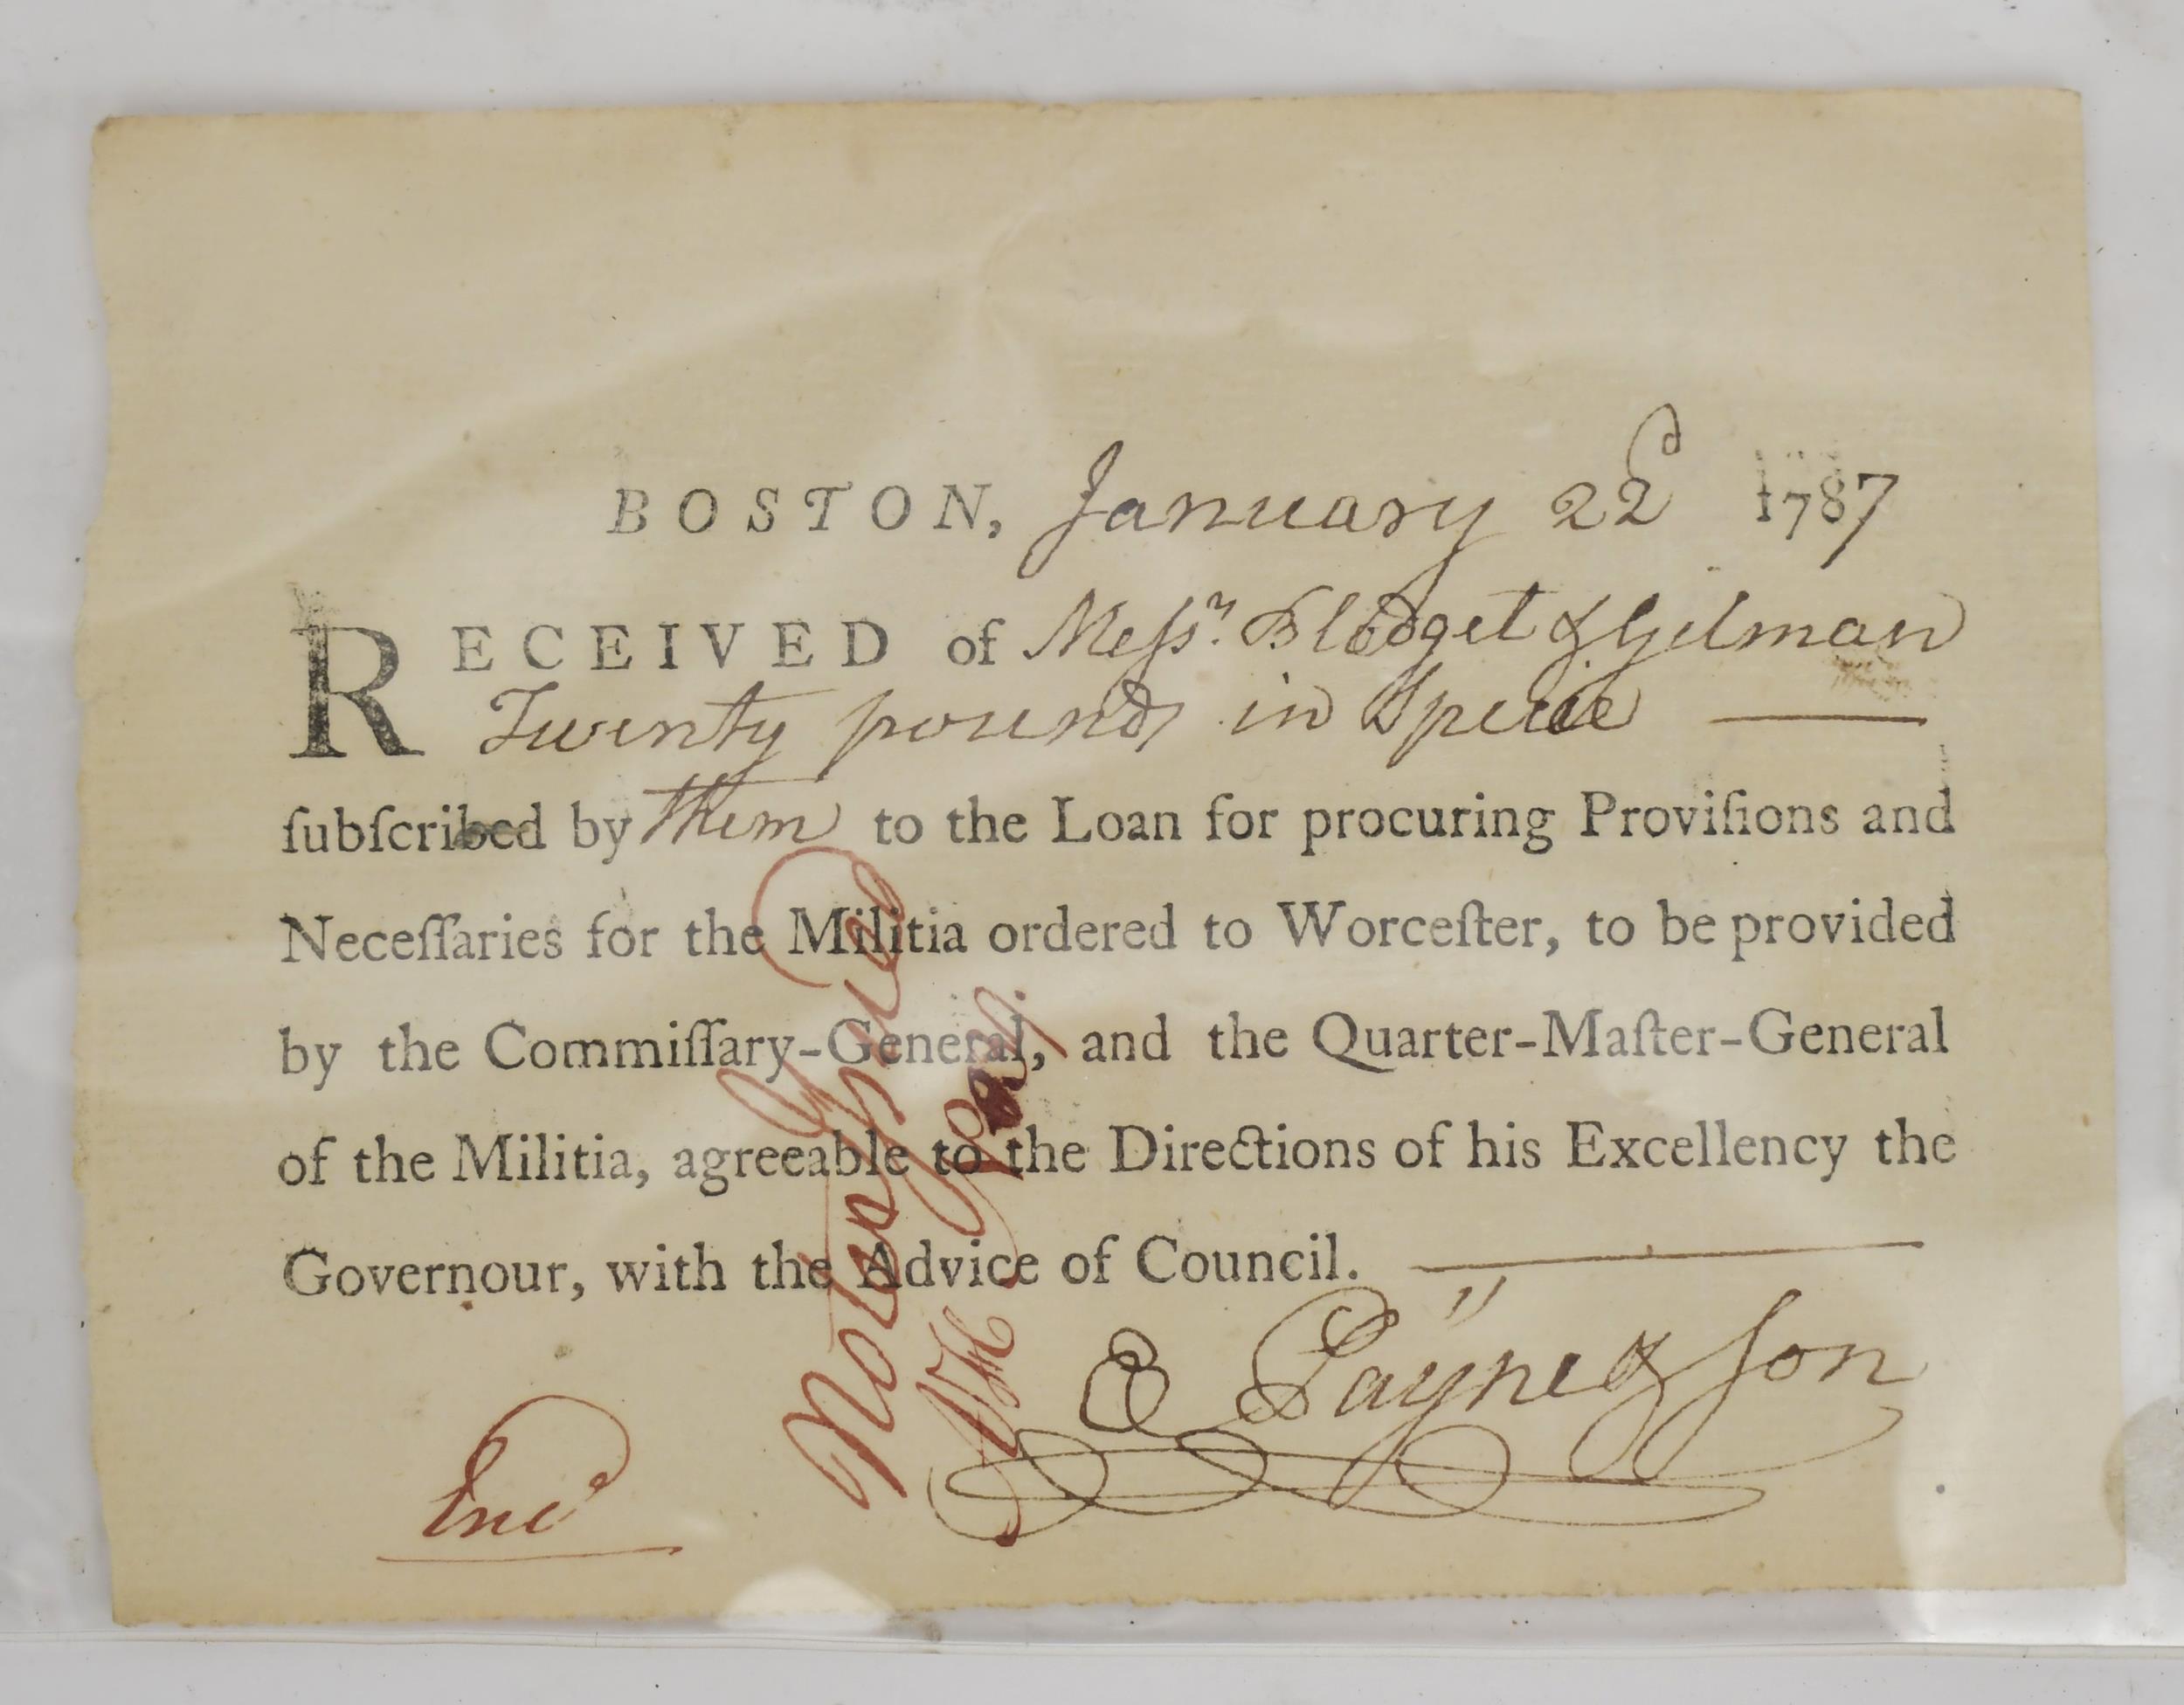 BOSTON, January 22d 1787
RECEIVED of Messrs. Blodget & Gilman
Twenty pounds in Specie
ſubſcribed by them to the Loan for procuring Proviſions and
Neceſſaries for the Militia ordered to Worceſter, to be provided
by the Commiſſary-General, and the Quarter-Maſter-General
of the Militia, agreeable to the Directions of his Excellency the
Governour, with the Advice of Council.
E Payne & Son
Note Issued
Entd